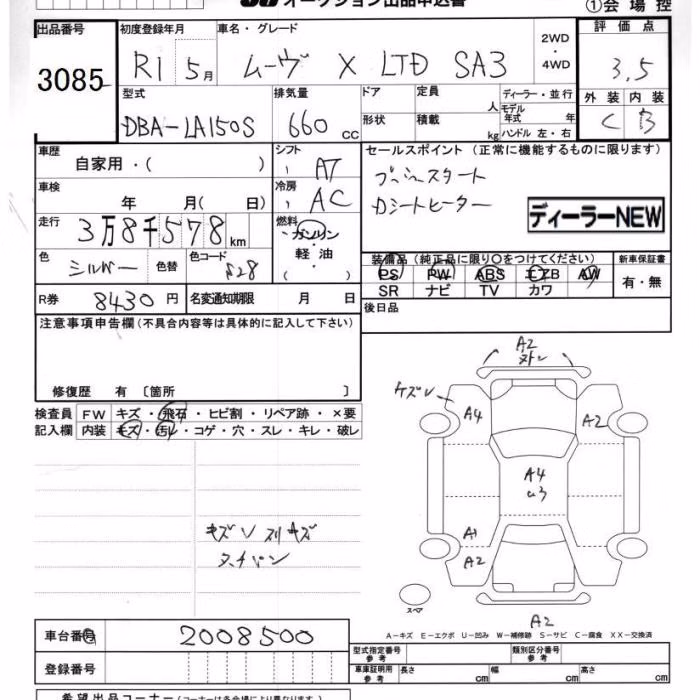 オークション出品申込書
①会場控
出品番号 初度登録年月 車名・グレード 2WD・4WD 評価点
3085 R1 5月 ムーヴ X LTD SA3 3.5
型式 排気量 ドア 定員 人 ディーラー・並行 外装 内装
DBA-LA150S 660cc 形状 積載 kg モデル年式 年 ハンドル 左・右 C B
車歴 自家用・( ) シフト AT セールスポイント (正常に機能するものに限ります)
車検 年 月( 日) 冷房 AC プッシュスタート
走行 3万8千578km 燃料 ガソリン・軽油・( ) Dシートヒーター
ディーラーNEW
色 シルバー 色替 色コード S28 装備品 (純正品に限り○をつけてください) 新車保証書
PS PW ABS エアB AW 有・無
SR ナビ TV カワ
R券 8430円 名変通知期限 月 日 後日品
注意事項申告欄(不具合内容等は具体的に記入して下さい)
修復歴 有〔箇所 〕
検査員記入欄 FW キズ・飛石・ヒビ割・リペア跡・×要
内装 キズ・汚レ・コゲ・穴・スレ・キレ・破レ
キズV スリキズ
A2
A4 A2
A4
U3
A1
A2
スペア
A2
A-キズ E-エクボ U-凹み W-補修跡 S-サビ C-腐食 XX-交換済
車台番号 2008500 型式指定番号 参考 類別区分番号 参考
登録番号 車庫証明用 参考 長さ cm 幅 cm 高さ cm
希望出品コーナー(コーナーは各会場により異なります。)